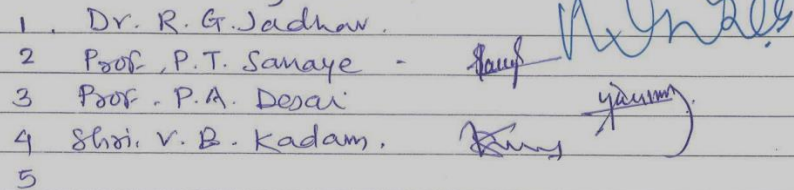 1. Dr. R. G. Jadhav.
2 Prof. P. T. Sanaye -
3 Prof. P. A. Desai
4 Shri. V. B. Kadam.
5